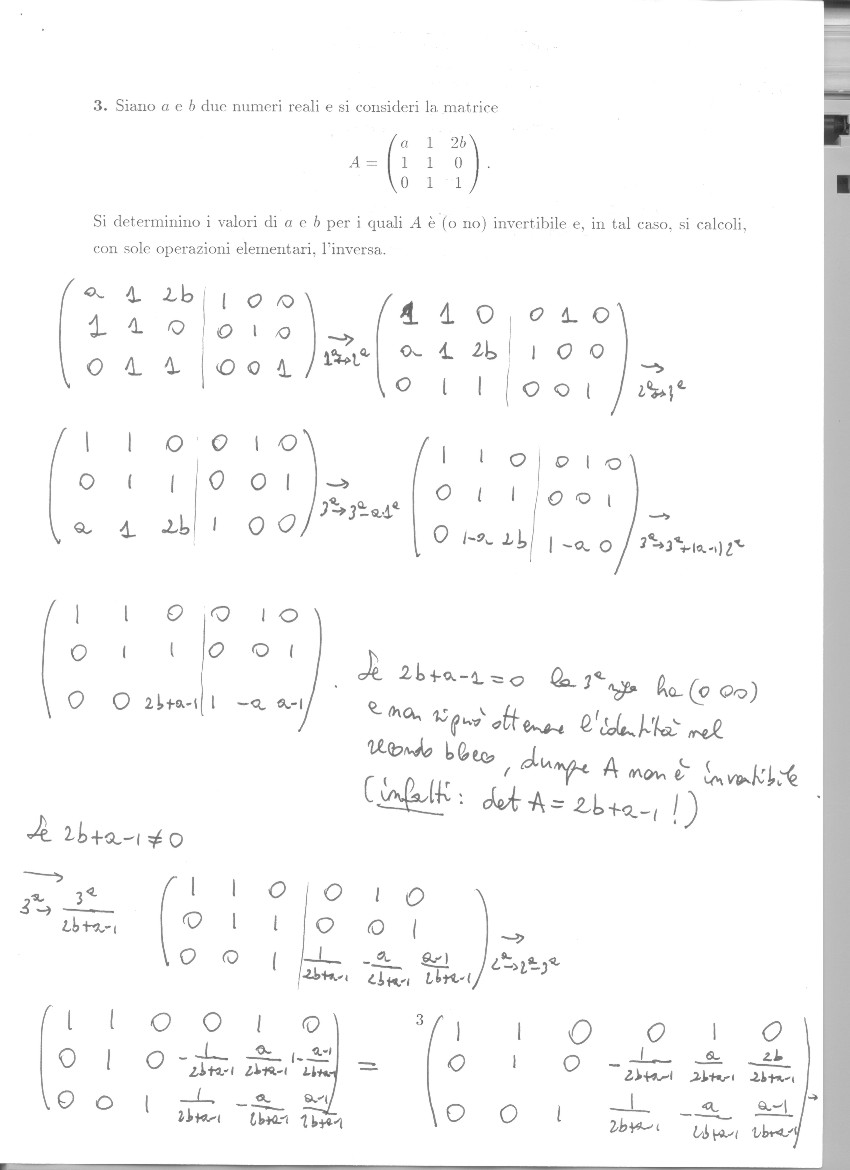 3. Siano a e b due numeri reali e si consideri la matrice
A = ( a 1 2b
1 1 0
0 1 1 ) .
Si determinino i valori di a e b per i quali A è (o no) invertibile e, in tal caso, si calcoli,
con sole operazioni elementari, l'inversa.
( a 1 2b | 1 0 0
1 1 0 | 0 1 0
0 1 1 | 0 0 1 ) → 1ª↔2ª
( 1 1 0 | 0 1 0
a 1 2b | 1 0 0
0 1 1 | 0 0 1 ) → 2ª↔3ª
( 1 1 0 | 0 1 0
0 1 1 | 0 0 1
a 1 2b | 1 0 0 ) → 3ª→3ª-a·1ª
( 1 1 0 | 0 1 0
0 1 1 | 0 0 1
0 1-a 2b | 1 -a 0 ) → 3ª→3ª+(a-1)2ª
( 1 1 0 | 0 1 0
0 1 1 | 0 0 1
0 0 2b+a-1 | 1 -a a-1 ) .
Se 2b+a-1=0 la 3ª riga ha (0 0 0)
e non si può ottenere l'identità nel
secondo blocco, dunque A non è invertibile
(infatti: det A = 2b+a-1 !)
Se 2b+a-1 ≠ 0
→ 3ª→ 3ª/(2b+a-1)
( 1 1 0 | 0 1 0
0 1 1 | 0 0 1
0 0 1 | 1/(2b+a-1) -a/(2b+a-1) (a-1)/(2b+a-1) ) → 2ª→2ª-3ª
( 1 1 0 | 0 1 0
0 1 0 | -1/(2b+a-1) a/(2b+a-1) 1-(a-1)/(2b+a-1)
0 0 1 | 1/(2b+a-1) -a/(2b+a-1) (a-1)/(2b+a-1) ) =
3
( 1 1 0 0 1 0
0 1 0 -1/(2b+a-1) a/(2b+a-1) 2b/(2b+a-1)
0 0 1 1/(2b+a-1) -a/(2b+a-1) (a-1)/(2b+a-1) ) →